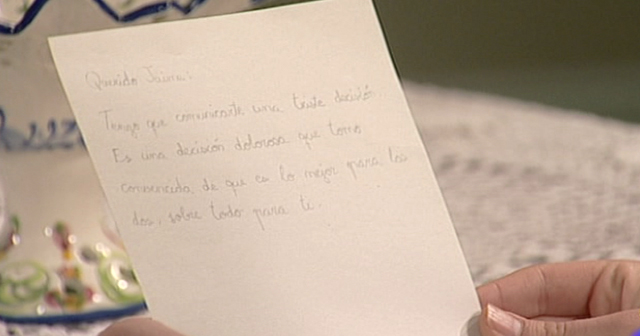 Querido Jaime:
Tengo que comunicarte una triste decisión.
Es una decisión dolorosa que tomo
convencida de que es lo mejor para los
dos, sobre todo para ti.